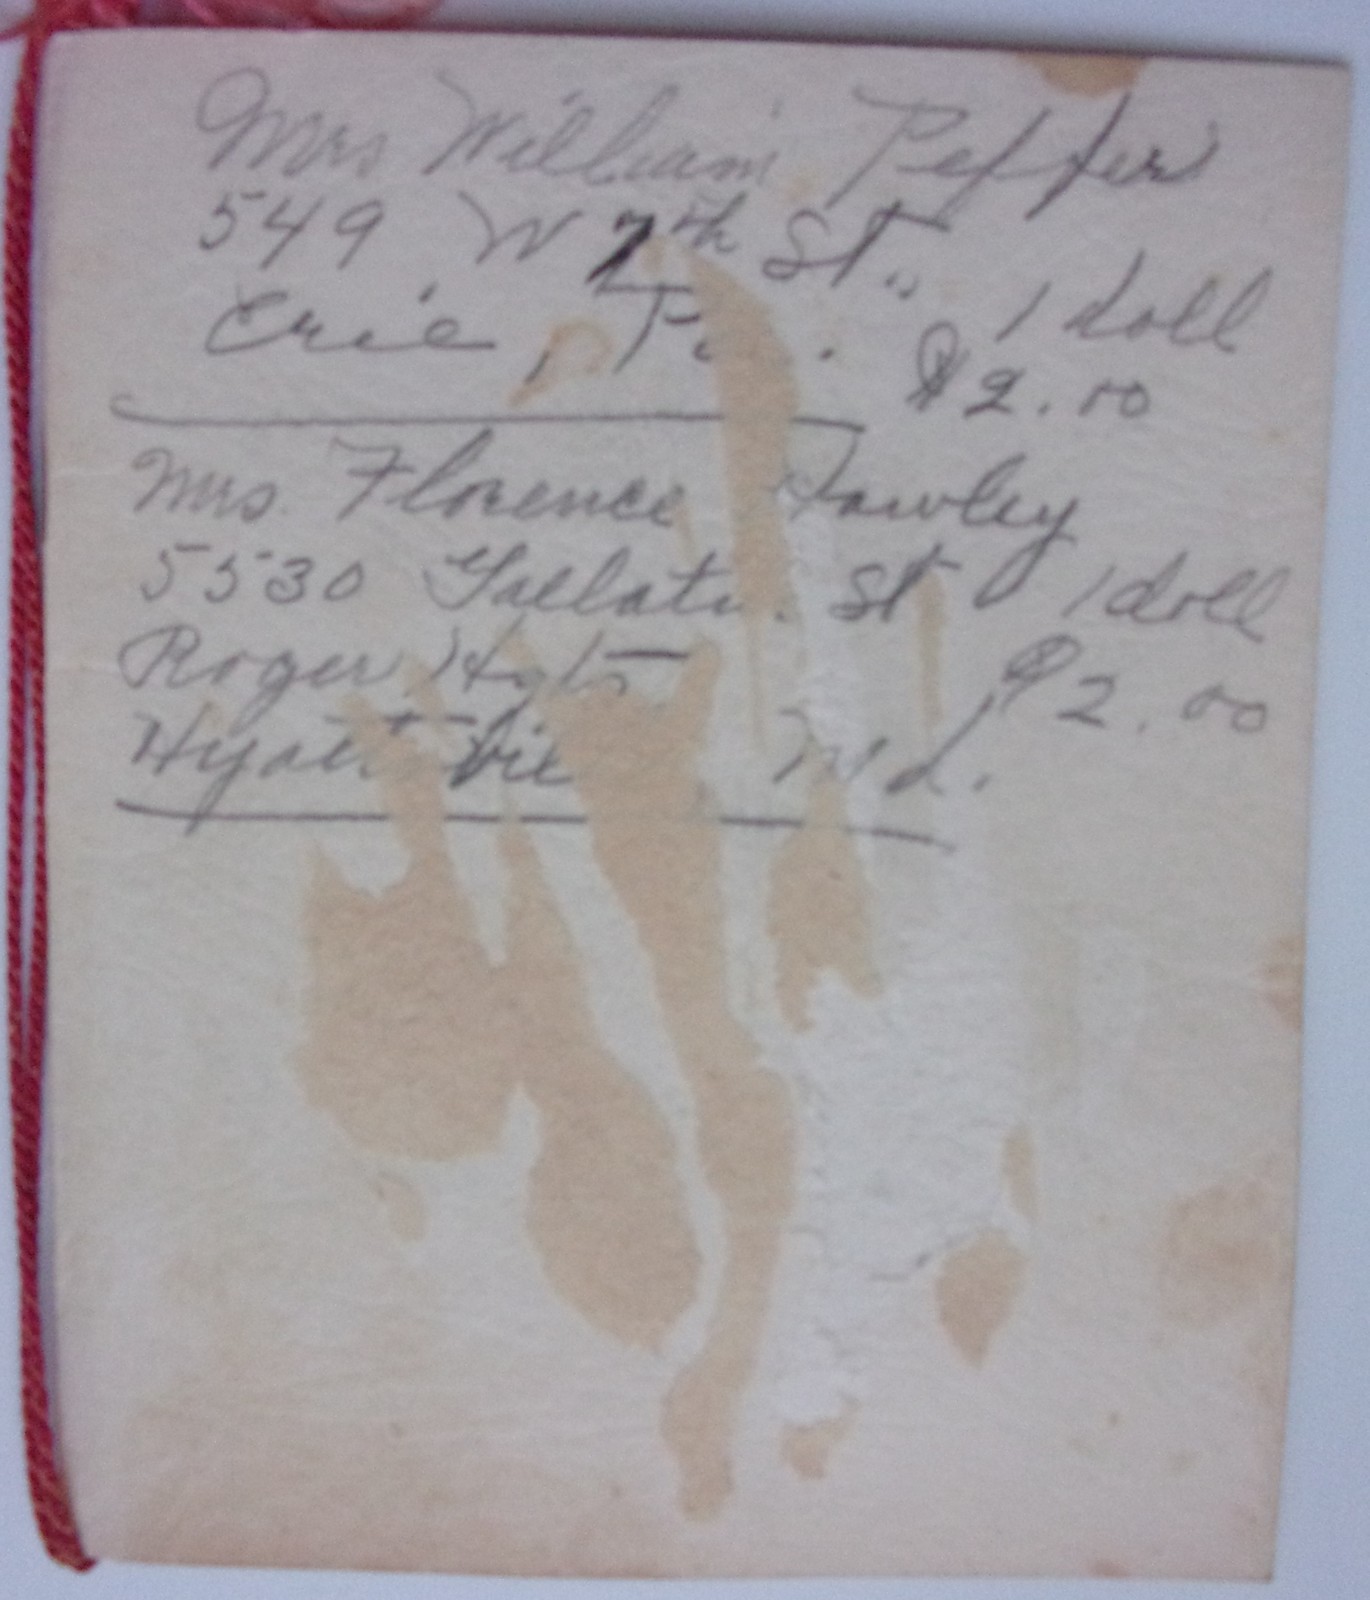 Mrs William Peffer
549 W 7th St.,
Erie, Pa. 1 doll
$2.00
Mrs. Florence
5530 Gallatin St 1 doll
Roger Hgts $2.00
Hyattsville Md.